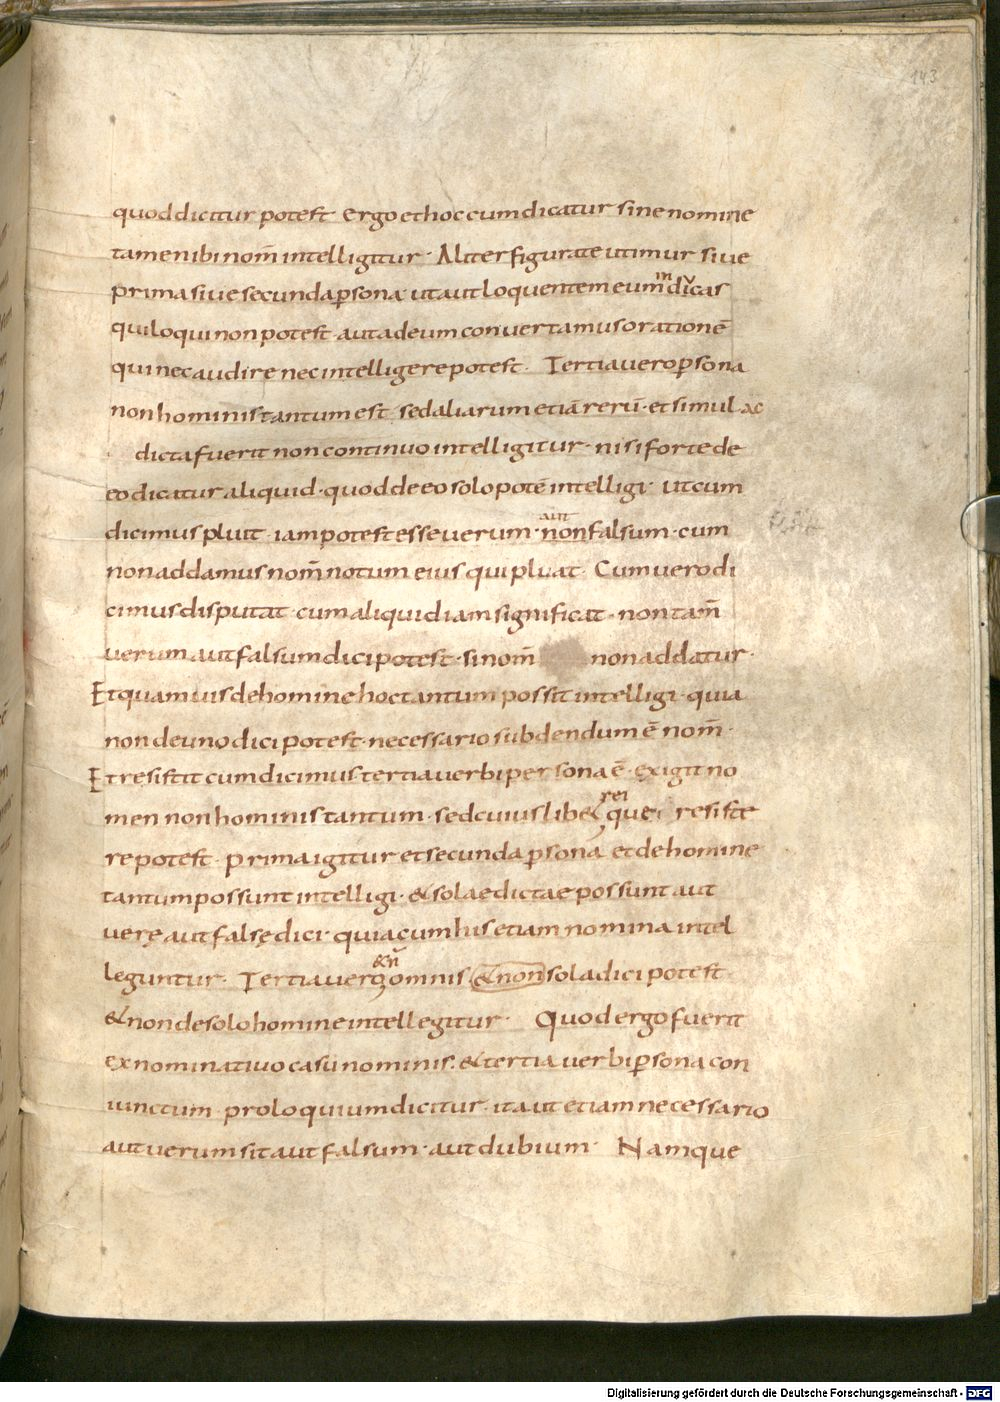 143
quoddicitur potest ergo ethoc cum dicatur sine nomine
tamen ibi nom̄ intelligitur · Aliter figurate utimur siue
prima siue secunda ꝑsona ut aut loquentem eum in dicas
qui loqui non potest · aut ad eum conuertamus orationē
qui nec audire nec intellegere potest · Tertia uero ꝑsona
non hominis tantum est sed aliarum etiā rerū · et simul ac
dicta fuerit non continuo intelligitur · nisi forte de
eo dicatur aliquid · quod de eo solo potē intelligi · ut cum
dicimus pluit · iam potest esse uerum · aut non falsum · cum
non addamus nom̄ notum eius qui pluat · Cum uero di
cimus disputat · cum aliquid iam significat · non tam̄
uerum aut falsum dici potest · si nom̄ non addatur ·
Et quamuis de homine hoc tantum possit intelligi · quia
non de uno dici potest · necessario subdendum ē nom̄ ·
Et resistit cum dicimus tertia uerbi persona ē · exigit no
men non hominis tantum · sed cuius lib& rei que resiste
re potest · prima igitur et secunda ꝑsona et de homine
tantum possunt intelligi · & solae dictae possunt aut
uerę aut falsę dici · quia cum his etiam nomina intel
leguntur · Tertia uero &n̄ omnis & non sola dici potest
& non de solo homine intellegitur · Quod ergo fuerit
ex nominatiuo casu nominis · & tertia uerbi ꝑsona con
iunctum · proloquium dicitur · ita ut etiam necessario
aut uerum sit aut falsum · aut dubium · Namque
Digitalisierung gefördert durch die Deutsche Forschungsgemeinschaft - DFG